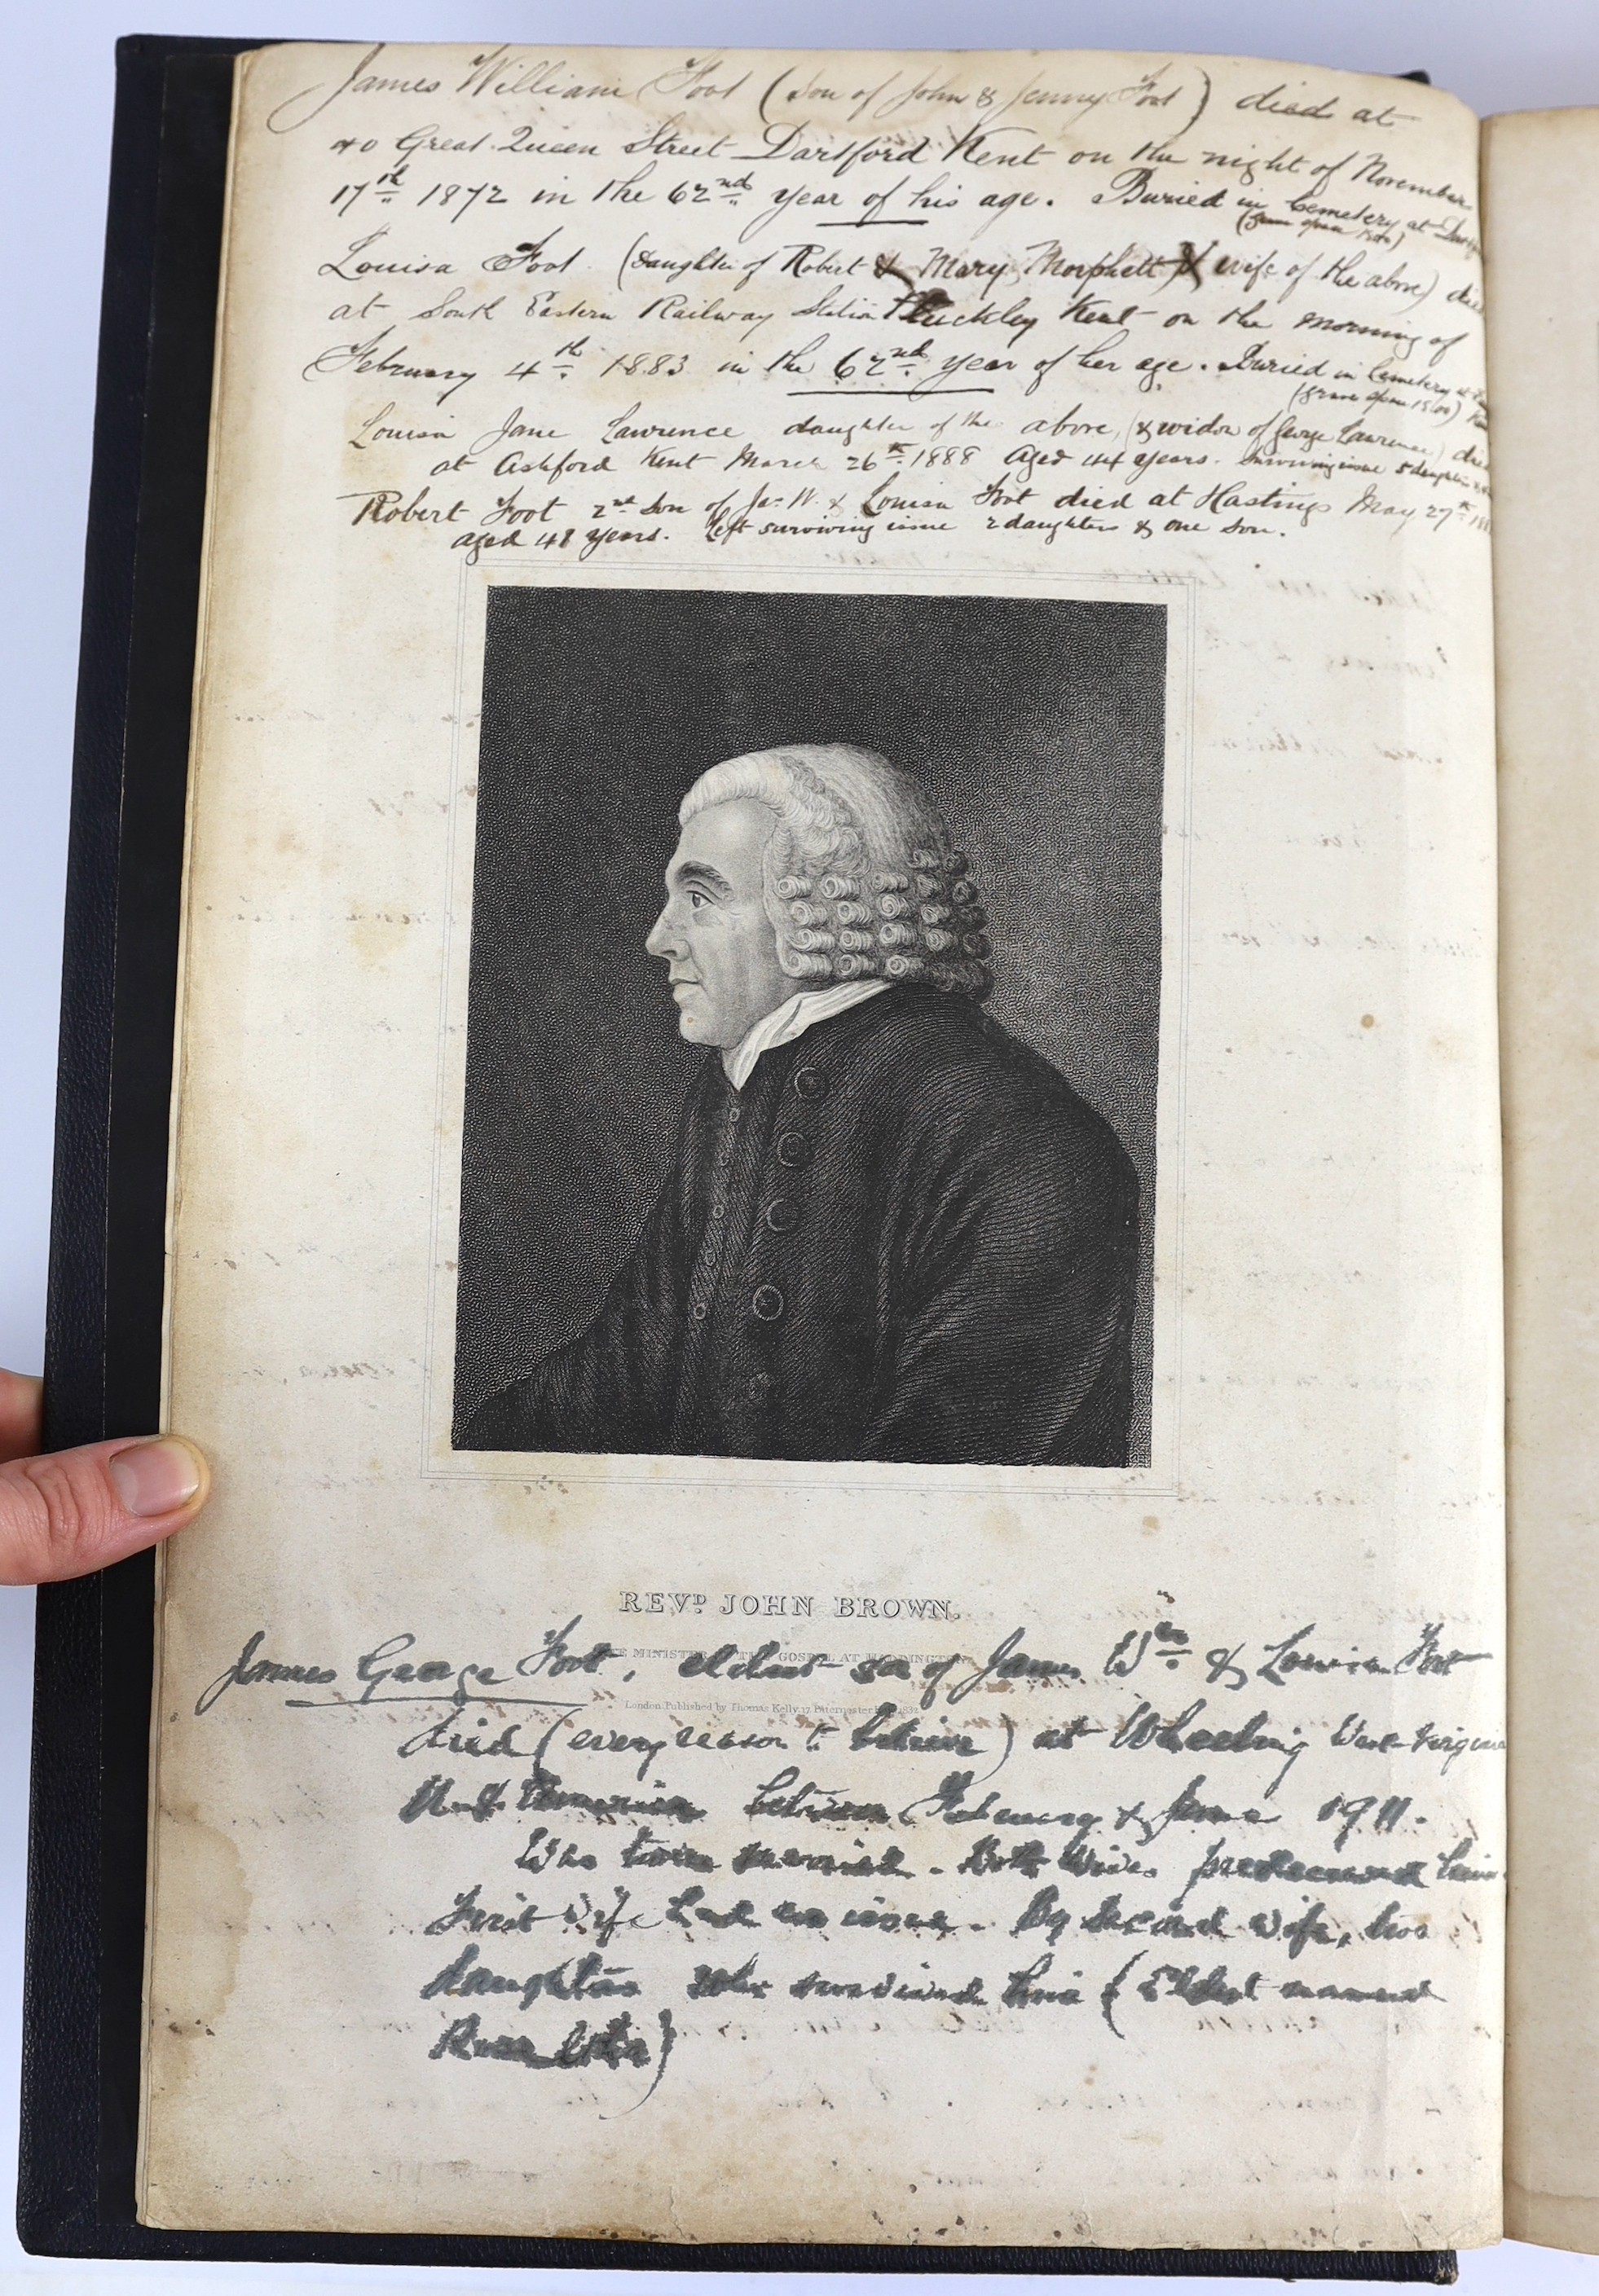 James William Foot (Son of John & Jenny Foot) died at
40 Great Queen Street Dartford Kent on the night of November
17th 1872 in the 62nd year of his age. Buried in Cemetery at
(grave space
Louisa Foot. (Daughter of Robert & Mary Morphett & wife of the above) died
at South Eastern Railway Station Pluckley Kent on the morning of
February 4th 1883 in the 62nd year of her age. Buried in Cemetery at
(grave space
Louisa Jane Lawrence daughter of the above, (& widow of George Lawrence) died
at Ashford Kent March 26th 1888 Aged 44 years. Surviving issue 5 daughters
Robert Foot 2nd Son of Jas. W. & Louisa Foot died at Hastings May 27th
aged 48 years. Left surviving issue 2 daughters & one son.
REVD. JOHN BROWN.
MINISTER GOSPEL AT HADDINGTON
James George Foot, eldest son of James Wm. & Louisa Foot
London. Published by Thomas Kelly, 17 Paternoster 1832
died (every reason to believe) at Wheeling West Virginia
U.S. America between February & June 1911.
Was twice married. Both Wives predeceased him
First wife had no issue. By second wife, two
daughters who survived him (Eldest named
Rosa